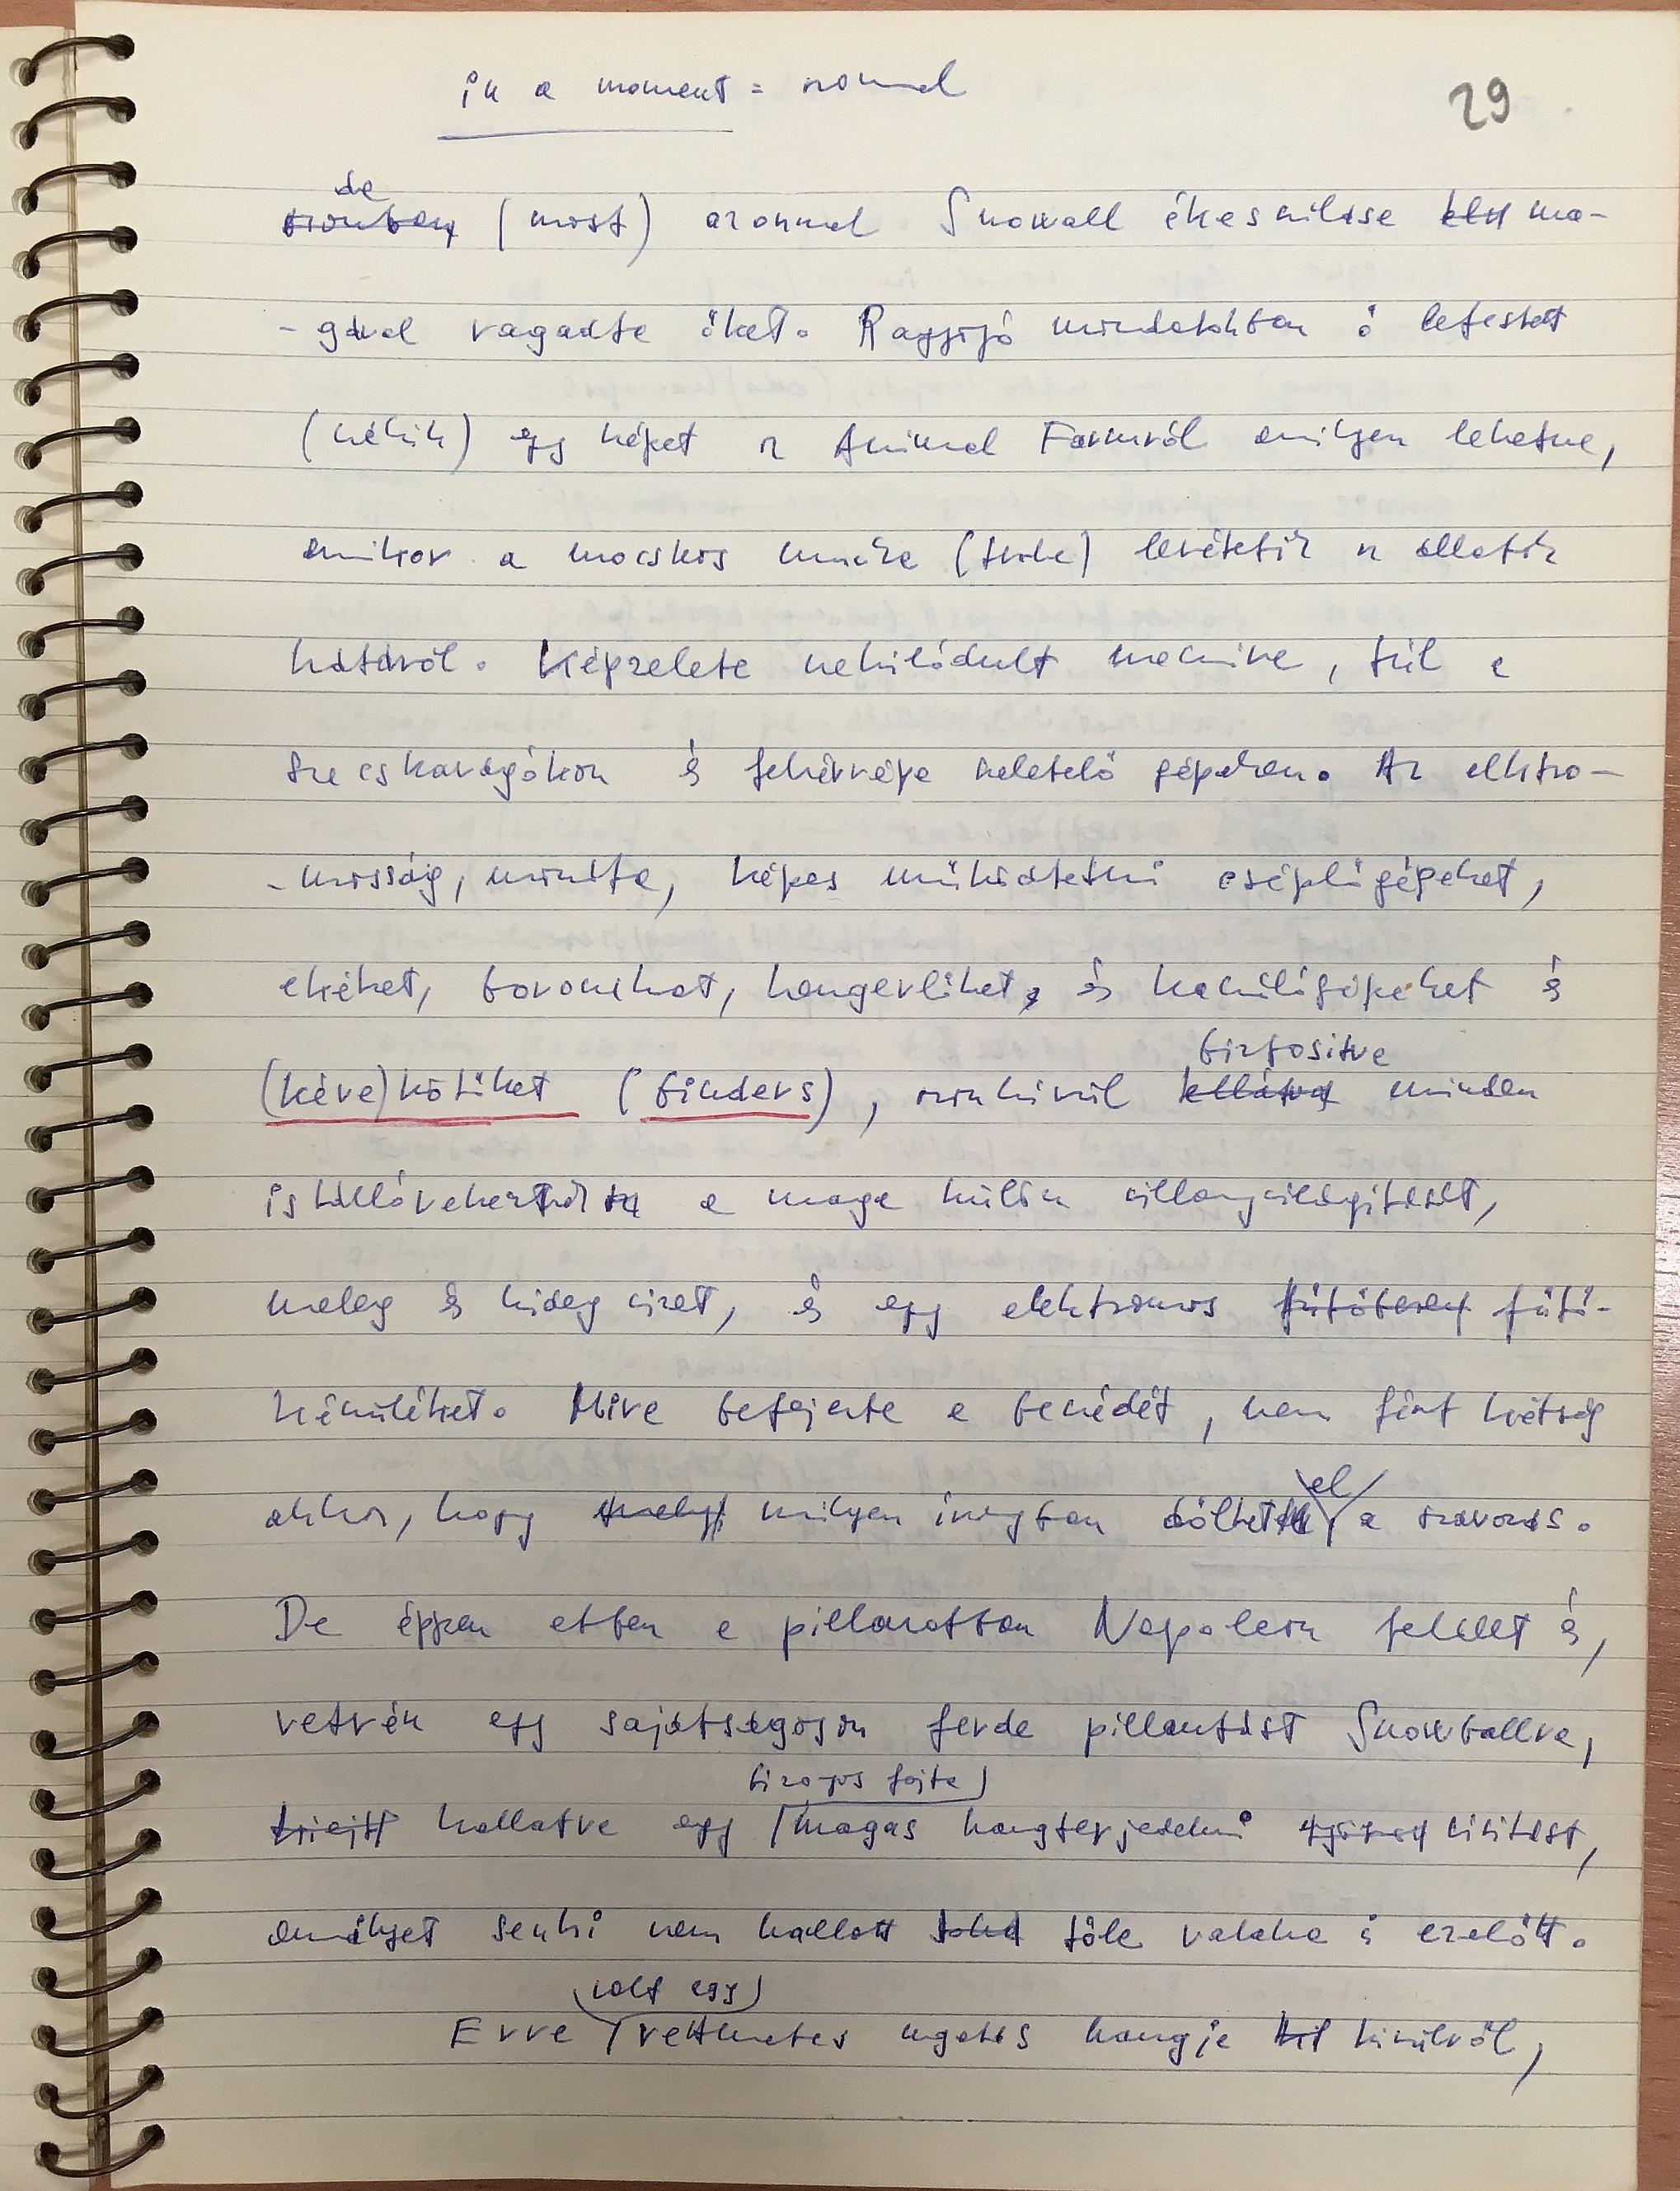 in a moment = azonnal
29
de
azonban (most) azonnal Snowball ékesszólása ma-
-gával ragadta őket. Ragyogó mondatokban ő lefestett
(nékik) egy képet az Animal Farmról amilyen lehetne,
amikor a mocskos munka (terhe) levétetik az állatok
hátáról. Képzelete nekilódult messzire, túl a
szecskavágókon és fehérrépa szeletelő gépeken. Az elktro-
-mosság, mondta, képes működtetni cséplőgépeket,
ekéket, boronákat, hengerlőket, és kaszálógépeket és
biztosítva
(kéve)kötőket (binders), azonkívül ellátva minden
istállórekesznek a maga külön villanyvilágítását,
meleg és hideg vizet, és egy elektromos fűtőtestet fűtő-
készüléket. Mire befejezte a beszédét, nem fért kétség
el
ahhoz, hogy milyen irányban dőlhet a szavazás.
De éppen ebben a pillanatban Napoleon felállt és,
vetvén egy sajátságoson ferde pillantást Snowballra,
bizonyos fajta
hallatva egy (magas hangterjedelmű visítást,
amilyet senki nem hallott tőle valaha is ezelőtt.
volt egy
Erre rettenetes ugatás hangja kívülről,